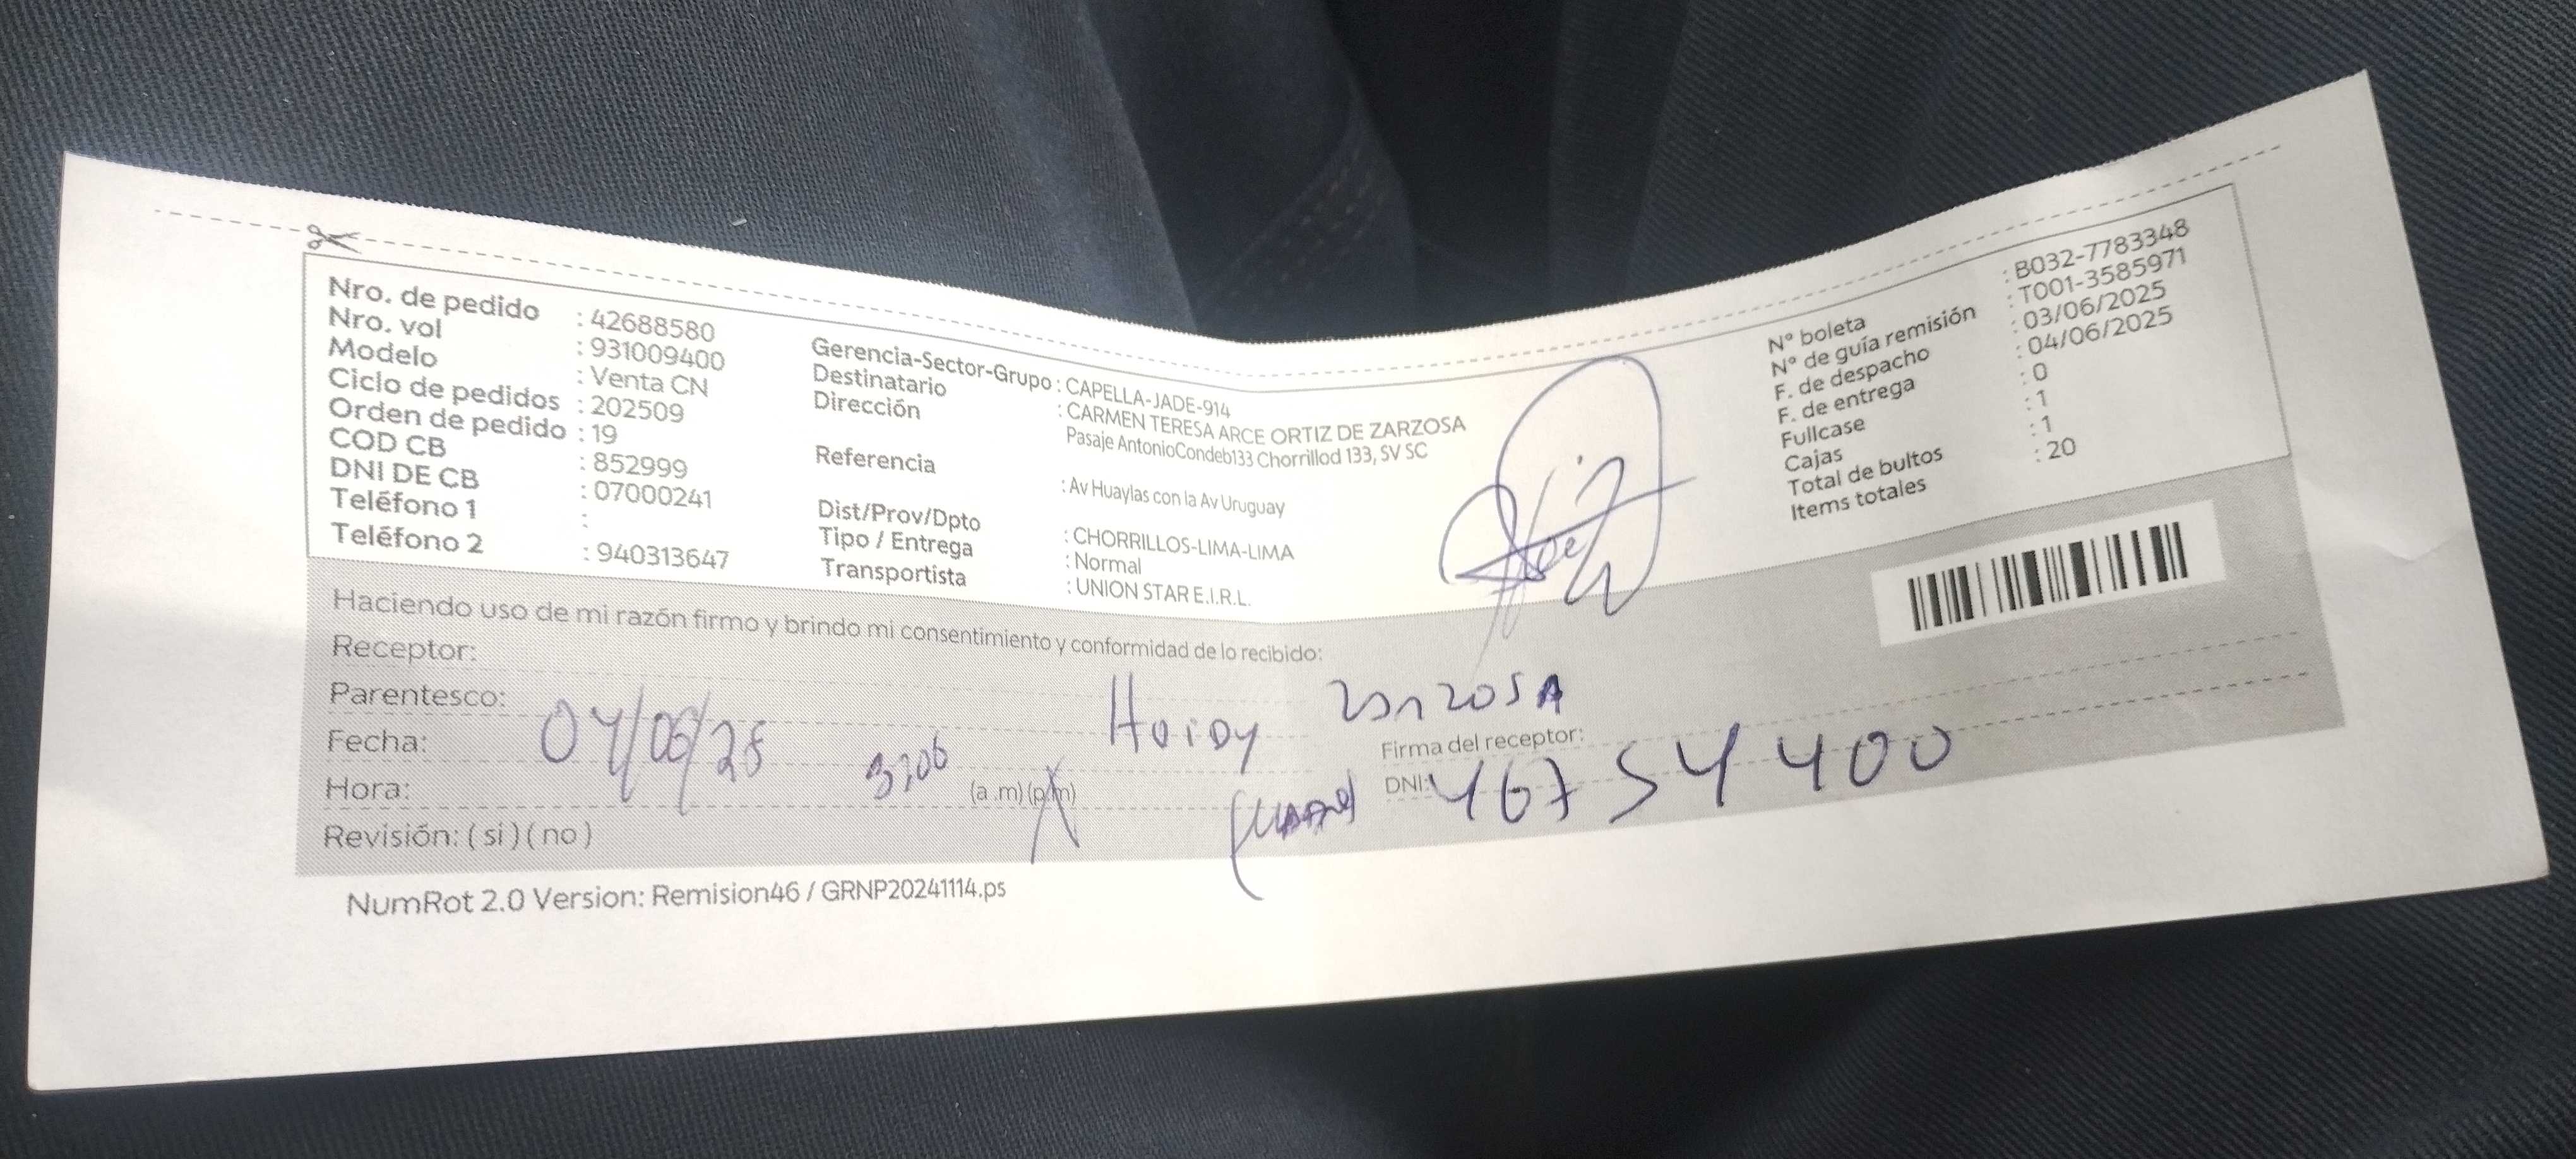 Nro. de pedido : 42688580
Nro. vol : 931009400
Modelo : Venta CN
Ciclo de pedidos : 202509
Orden de pedido : 19
COD CB : 852999
DNI DE CB : 07000241
Teléfono 1 :
Teléfono 2 : 940313647
Gerencia-Sector-Grupo : CAPELLA-JADE-914
Destinatario : CARMEN TERESA ARCE ORTIZ DE ZARZOSA
Dirección Pasaje AntonioCondeb133 Chorrillod 133, SV SC
Referencia : Av Huaylas con la Av Uruguay
Dist/Prov/Dpto : CHORRILLOS-LIMA-LIMA
Tipo / Entrega : Normal
Transportista : UNION STAR E.I.R.L.
N° boleta : B032-7783348
N° de guía remisión : T001-3585971
F. de despacho : 03/06/2025
F. de entrega : 04/06/2025
Fullcase : 0
Cajas : 1
Total de bultos : 1
Items totales : 20
Haciendo uso de mi razón firmo y brindo mi consentimiento y conformidad de lo recibido:
Receptor:
Parentesco:
Fecha: 04/06/25
Hora: (a.m) (p.m)
Revisión: ( si ) ( no )
Zarzosa
Firma del receptor:
DNI: 46754400
NumRot 2.0 Version: Remision46 / GRNP20241114.ps